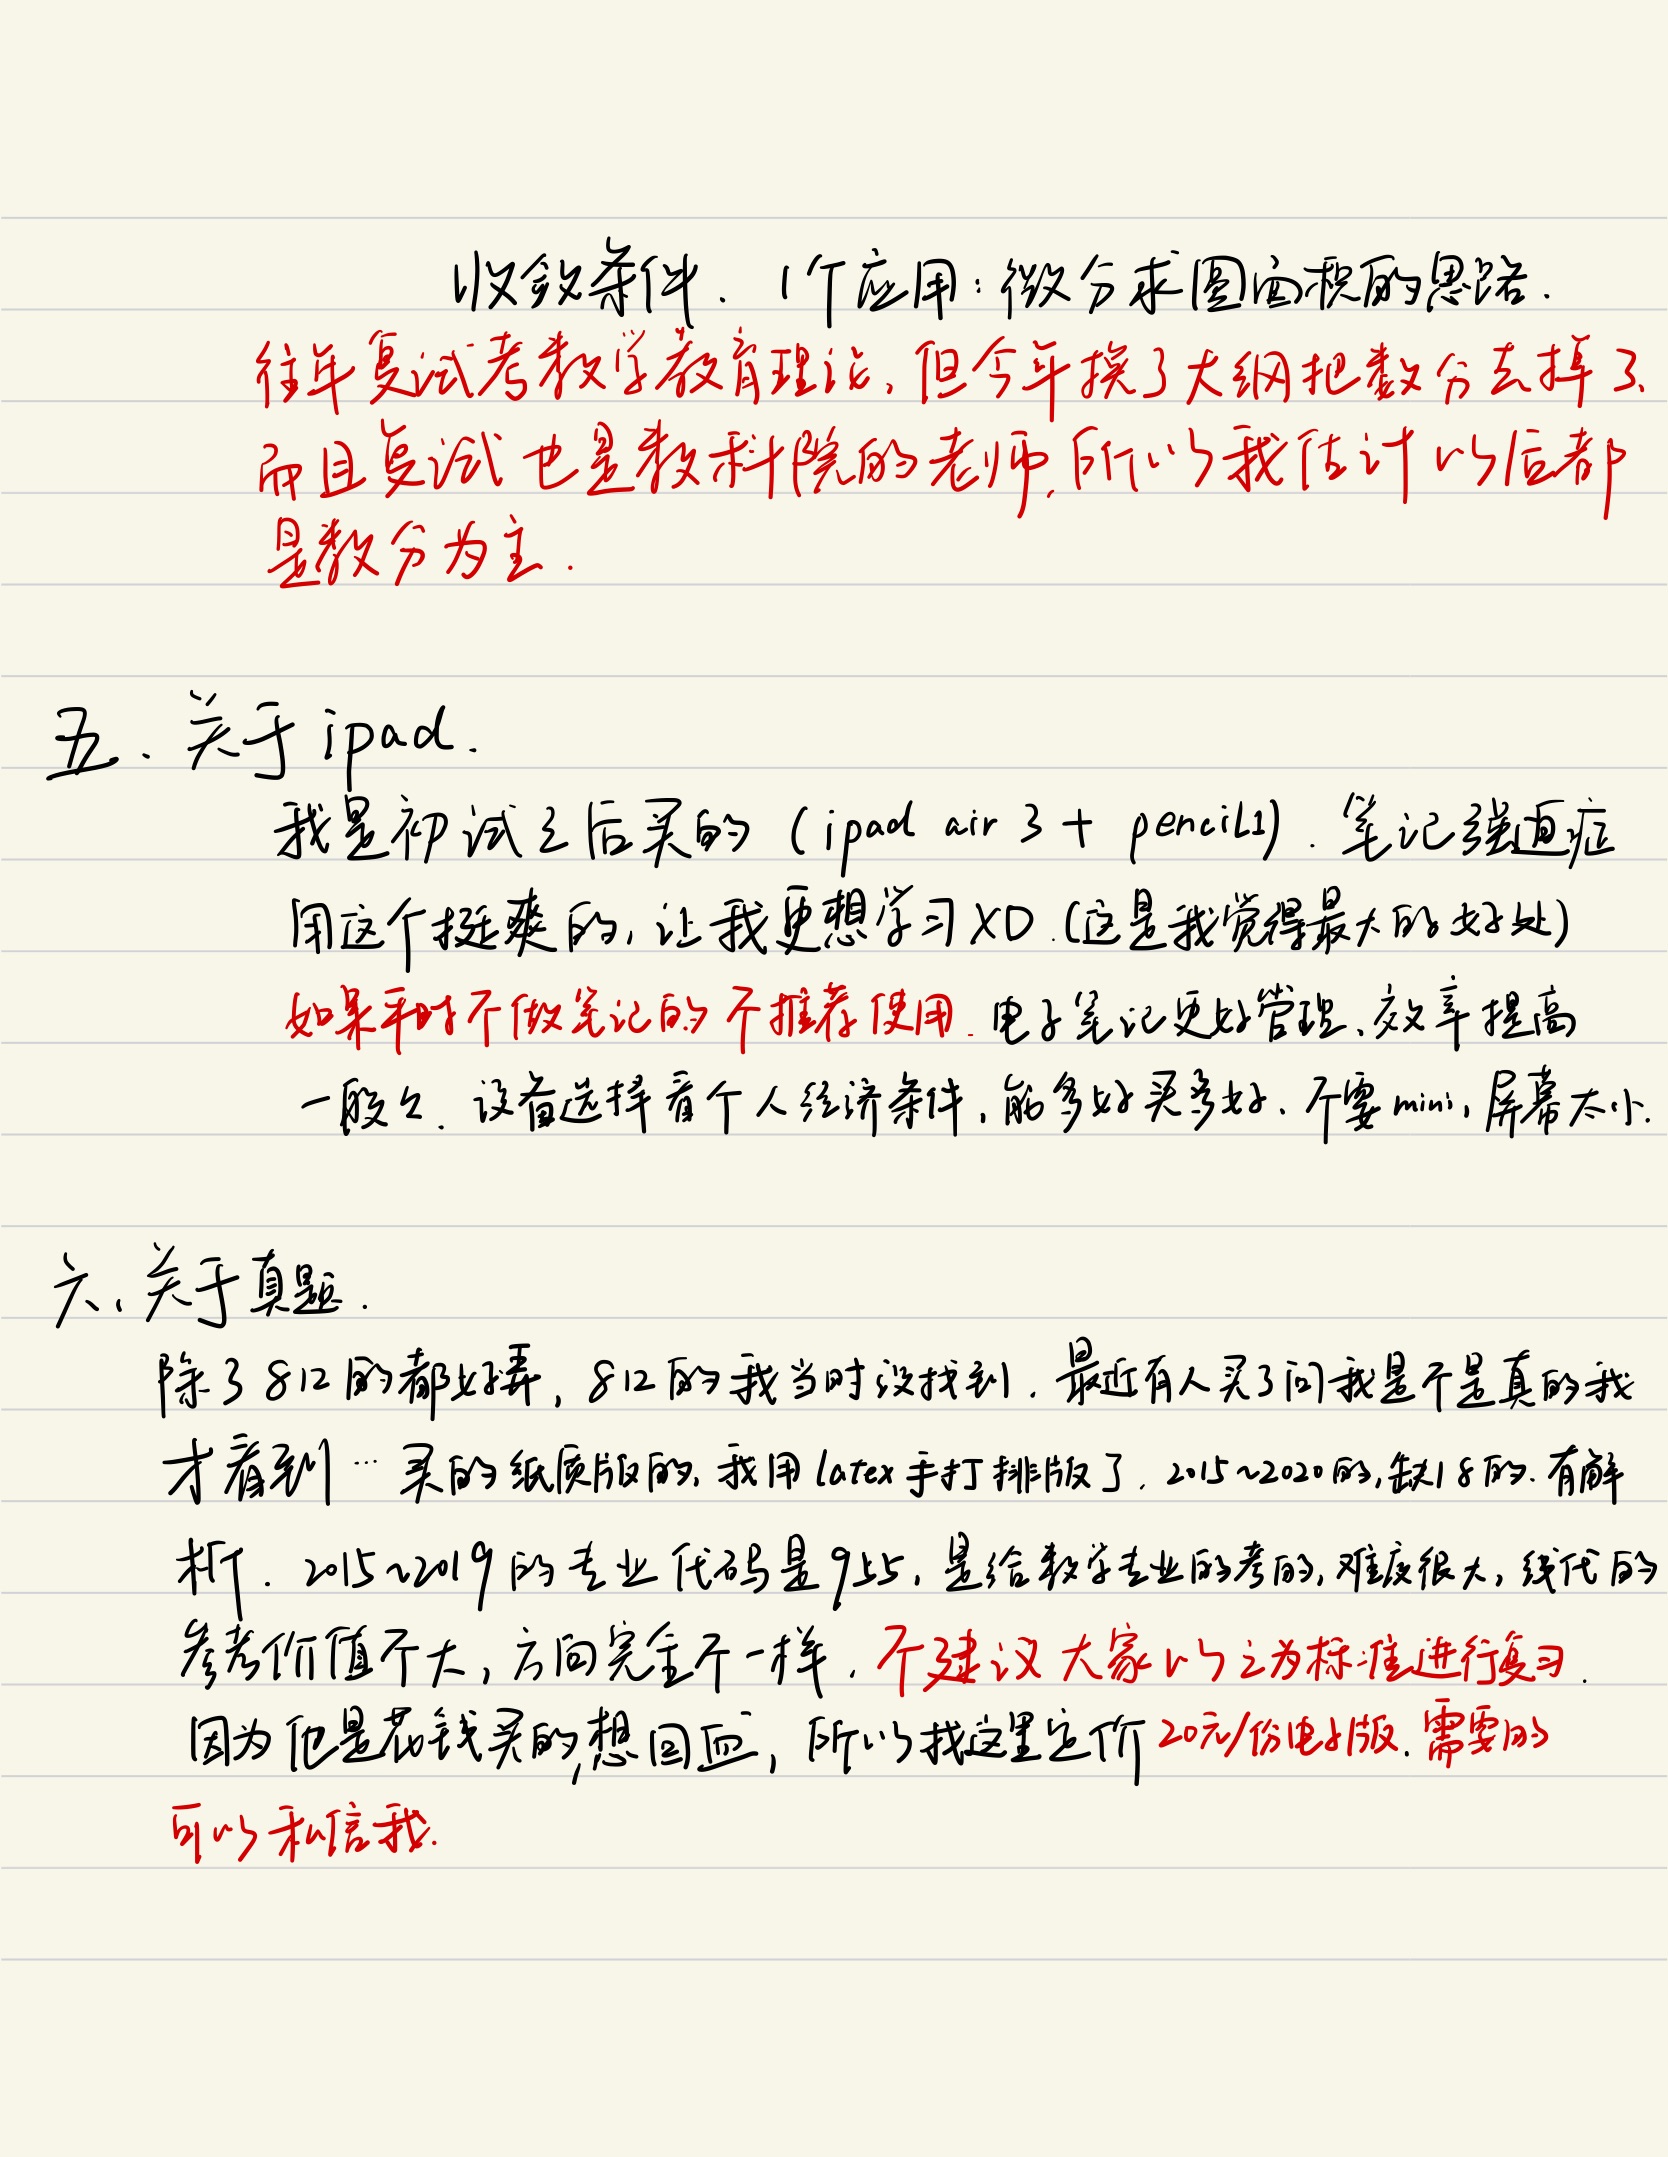 收敛条件. 1个应用:微分求圆面积的思路.
往年复试考数学教育理论,但今年换了大纲把数分去掉了、
而且复试也是教科院的老师,所以我估计以后都
是数分为主.
五.关于ipad.
我是初试之后买的 (ipad air 3 + pencil1). 笔记强迫症
用这个挺爽的,让我更想学习XD.(这是我觉得最大的好处)
如果平时不做笔记的不推荐使用.电子笔记更好管理、效率提高
一般么.设备选择看个人经济条件,能多好买多好、不要mini,屏幕太小.
六、关于真题.
除了812的都好弄,812的我当时没找到.最近有人买了问我是不是真的我
才看到…买的纸质版的,我用latex手打排版了.2015~2020的,缺18的.有解
析.2015~2019的专业代码是955,是给数学专业的考的,难度很大,线代的
参考价值不大,方向完全不一样.不建议大家以之为标准进行复习.
因为他是花钱买的,想回血,所以我这里定价20元/份电子版.需要的
可以私信我.